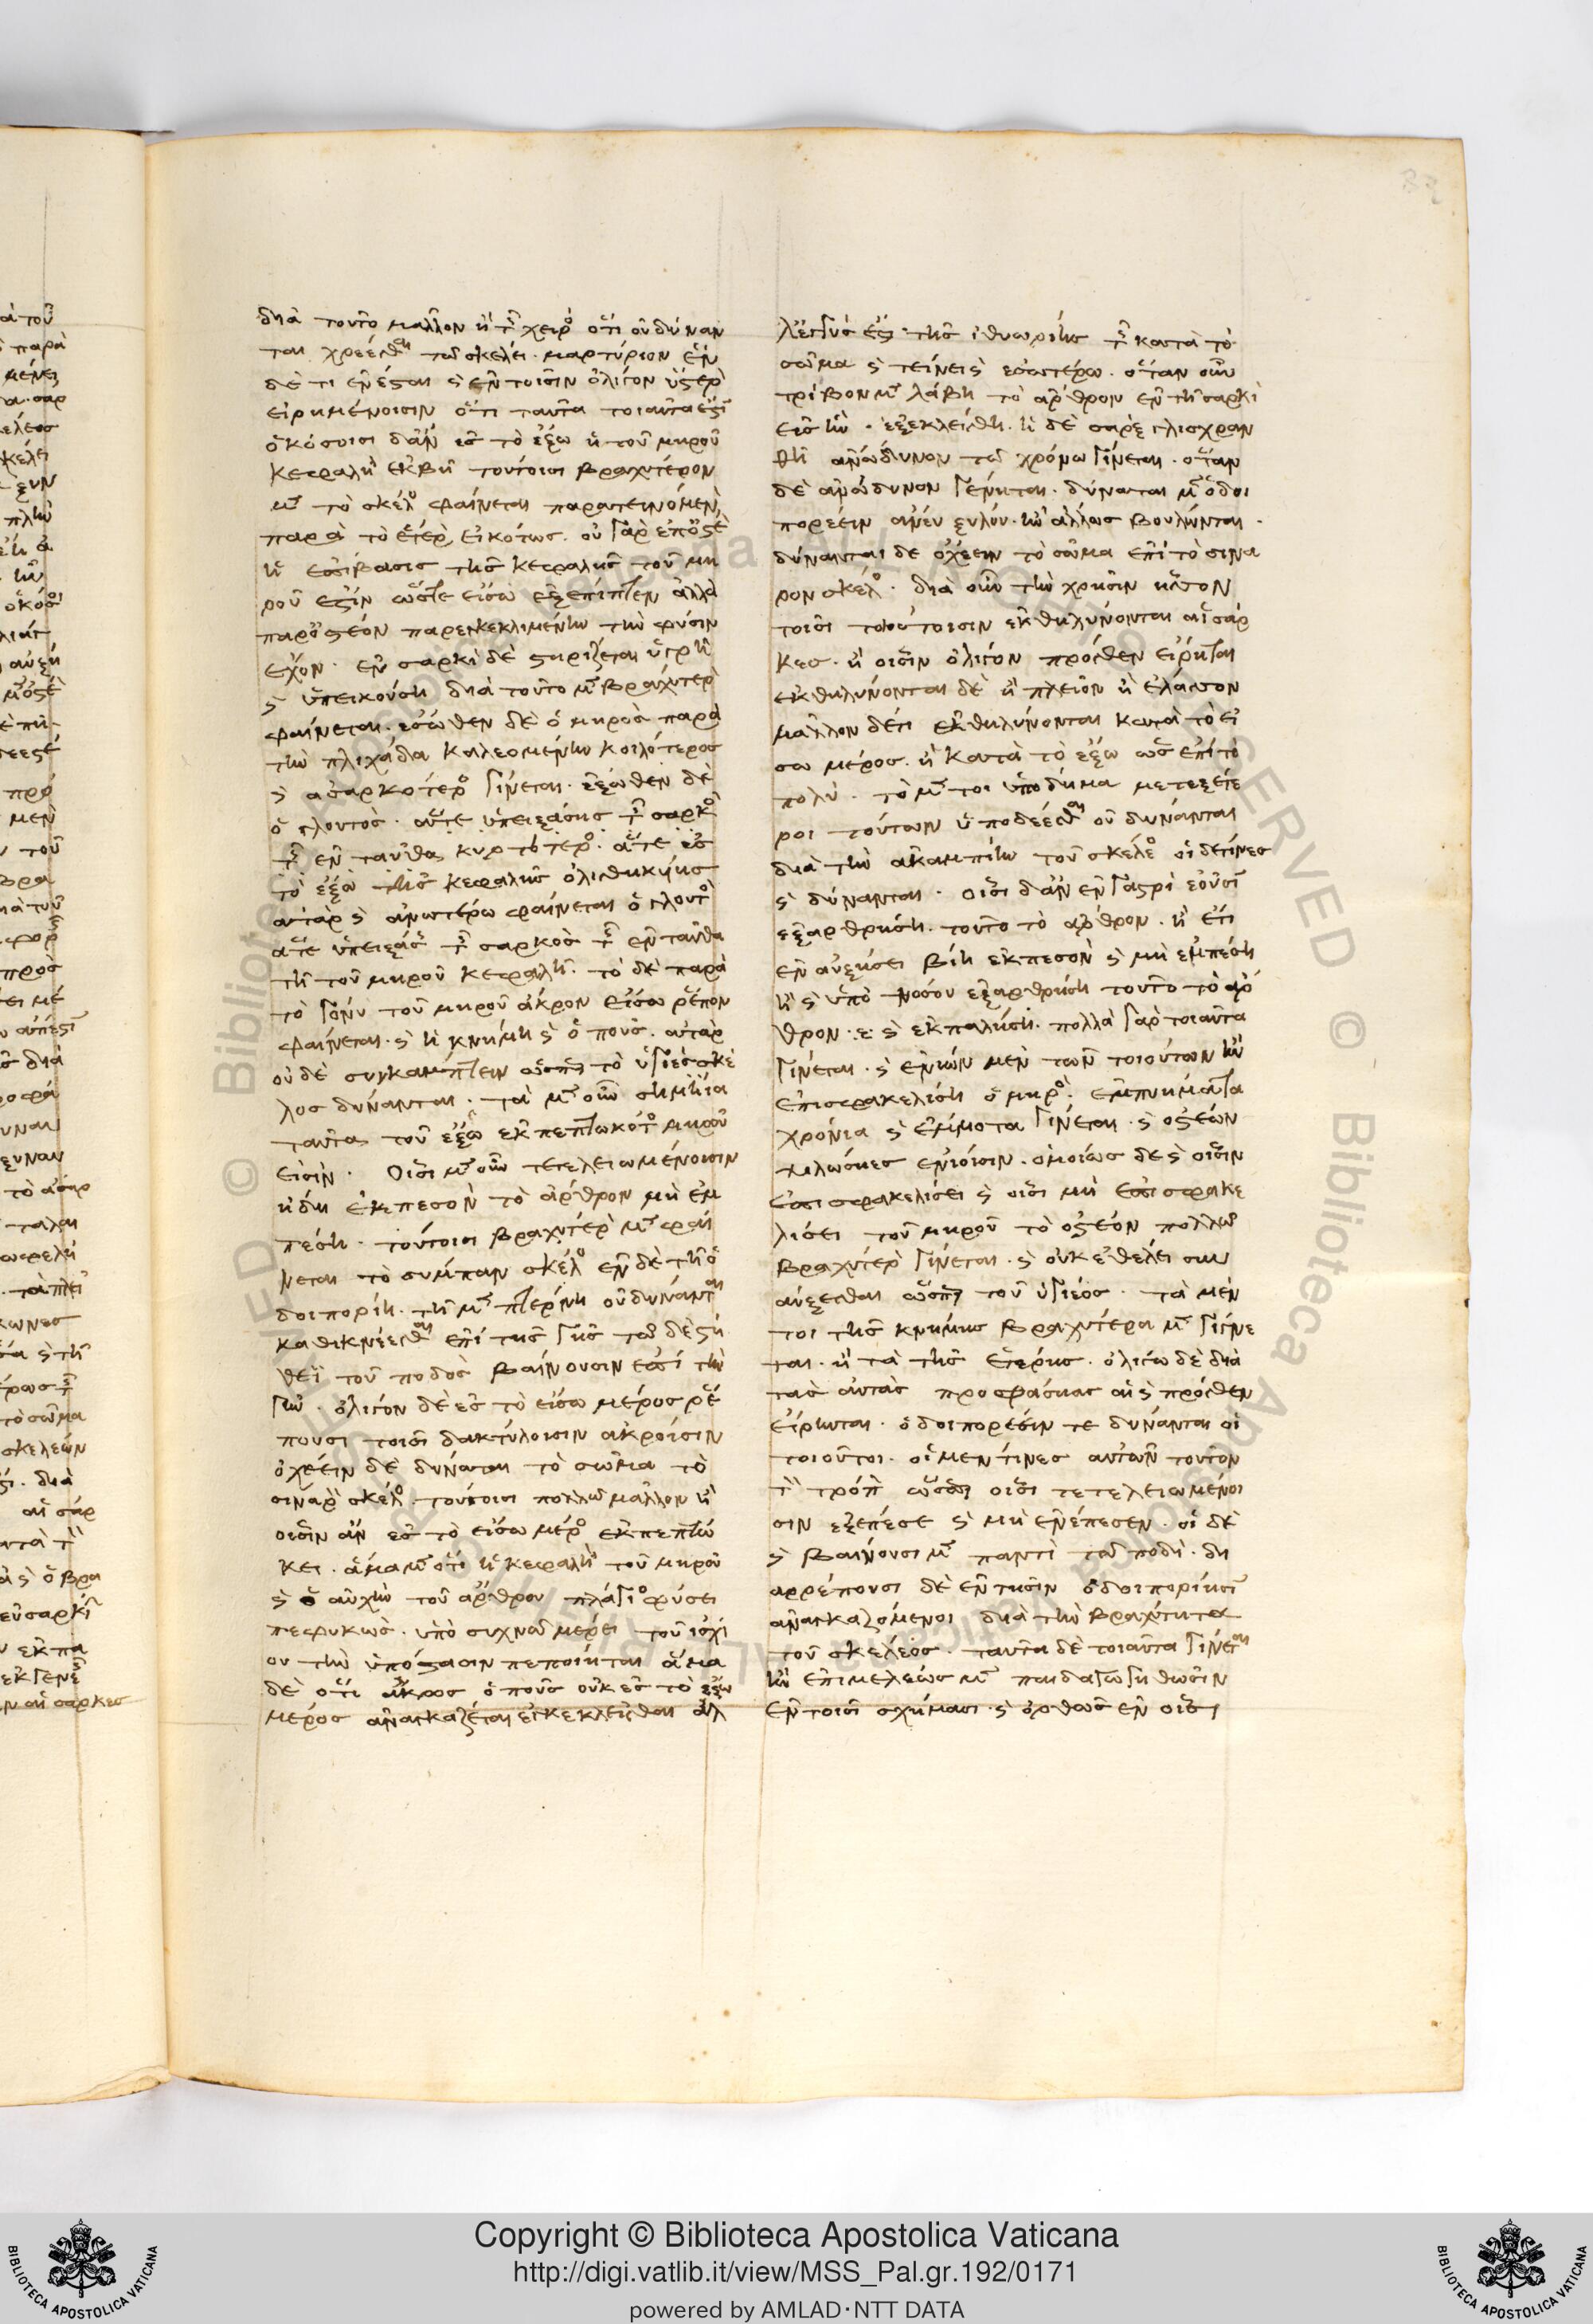 διὰ τοῦτο μᾶλλον ἢ τῆς χειρὸς ὅτι οὐ δύναν
ται χρέεσθαι τῶ σκέλει. μαρτύριον ἓν
δέ τι ἐνέσται καὶ ἐν τοῖσιν ὀλίγον ὕστερον
εἰρημένοισιν ὅτι ταῦτα τοιαῦτά ἐστι
ὁκόσοισι δ' ἂν ἐς τὸ ἔξω ἡ τοῦ μηροῦ
κεφαλὴ ἐκβῆ τούτοισι βραχύτερον
μὲν τὸ σκέλος φαίνεται παρατεινόμενον
παρὰ τὸ ἕτερον, εἰκότως. οὐ γὰρ ἐπ' ὀστέον
ἡ ἐπίβασις τῆς κεφαλῆς τοῦ μη
ροῦ ἐστὶν ὥστε εἴσω ἐξεπίπτεν ἀλλὰ
παρ' ὀστέον παρεγκεκλιμένην τὴν φύσιν
ἔχον. ἐν σαρκὶ δὲ στηρίζεται ὑγρῆ
καὶ ὑπεικούση διὰ τοῦτο μὲν βραχύτερον
φαίνεται. ἔσωθεν δὲ ὁ μηρὸς παρὰ
τὴν πλιχάδα καλεομένην κοιλότερος
καὶ ἀσαρκότερος γίνεται. ἔξωθεν δὲ
ὁ γλουτὸς. ἅτε ὑπειξάσης τῆς σαρκὸς
τῆς ἐνταῦθα, κυρτότερος. ἅτε ἐς
τὸ ἔξω τῆς κεφαλῆς ὀλισθηκυίης
ἀτὰρ καὶ ἀνωτέρω φαίνεται ὁ γλουτὸς
ἅτε ὑπειξάσης τῆς σαρκὸς τῆς ἐνταῦθα
τῆ τοῦ μηροῦ κεφαλῆ. τὸ δὲ παρὰ
τὸ γόνυ τοῦ μηροῦ ἄκρον εἴσω ῥέπον
φαίνεται. καὶ ἡ κνήμη καὶ ὁ πούς. ἀτὰρ
οὐδὲ συγκάμπτειν ὥσπερ τὸ ὑγιὲς σκέ
λος δύνανται. τὰ μὲν οὖν σημήϊα
ταῦτα τοῦ ἔξω ἐκπεπτωκότος μηροῦ
εἰσὶν. Οἷσι μὲν οὖν τετελειωμένοισιν
ἤδη ἐκπεσὸν τὸ ἄρθρον μὴ ἐμ
πέση. τούτοισι βραχύτερον μὲν φαί
νεται τὸ σύμπαν σκέλος ἐν δὲ τῆ ὁ
δοιπορίη. τῆ μὲν πτέρνη οὐ δύνανται
καθικνέεσθαι ἐπὶ τῆς γῆς τῶ δὲ στή
θεϊ τοῦ ποδὸς βαίνουσιν ἐπὶ τὴν
γῆν. ὀλίγον δὲ ἐς τὸ εἴσω μέρος ῥέ
πουσι τοῖσι δακτύλοισιν ἀκροίσιν
ὀχέειν δὲ δύναται τὸ σῶμα τὸ
σιναρὸν σκέλος. τούτοισι πολλῶ μᾶλλον ἢ
οἷσιν ἂν ἐς τὸ εἴσω μέρος ἐκπεπτώ
κει. ἅμα μὲν ὅτι ἡ κεφαλὴ τοῦ μηροῦ
καὶ ὁ αὐχὴν τοῦ ἄρθρου πλάγιος φύσει
πεφυκὼς. ὑπὸ συχνῶ μέρει τοῦ ἰσχί
ου τὴν ὑπόστασιν πεποίηται ἅμα
δὲ ὅτι ἄκρος ὁ ποῦς οὐκ ἐς τὸ ἔξω
μέρος ἀναγκάζεται ἐκκεκλεῖσθαι ἀλλ'
λ' ἐγγύς ἐς τῆς ἰθυωρίης τῆς κατὰ τὸ
σῶμα καὶ τείνει καὶ ἐσωτέρω. ὅταν οὖν
τρίβον μὲν λάβη τὸ ἄρθρον ἐν τῆ σαρκὶ
εἰς ἣν. ἐξεκλείσθη. ἡ δὲ σὰρξ γλισχραν
θῆ ἀνώδυνον τῶ χρόνω γίνεται. ὅταν
δὲ ἀνώδυνον γένηται. δύναται μὲν ὁδοι
πορέειν ἄνευ ξυλύν. ἢν ἄλλως βούληνται.
δύνανται δὲ ὀχέειν τὸ σῶμα ἐπὶ τὸ σινα
ρὸν σκέλος. διὰ οὖν τὴν χρῆσιν ἧττον
τοῖσι τοιούτοισιν ἐκθηλύνονται αἱ σάρ
κες. ἢ οἷσιν ὀλίγον πρόσθεν εἴρηται
ἐκθηλύνονται δὲ ἢ πλεῖον ἢ ἔλαττον
μᾶλλον δέ τι ἐκθηλύνονται κατὰ τὸ εἴ
σω μέρος. ἢ κατὰ τὸ ἔξω ὡς ἐπὶ τὸ
πολύ. τὸ μέν τοι ὑπόδημα μετεξέτε
ροι τούτων ὑποδέεσθαι οὐ δύνανται
διὰ τὴν ἀκαμπίην τοῦ σκέλεος οἱ δέ τινες
καὶ δύνανται. οἷσι δ' ἂν ἐν γαστρὶ ἐοῦσι
ἐξαρθρήση. τοῦτο τὸ ἄρθρον. ἢ ἔτι
ἐν αὐξήσει βίη ἐκπεσὸν καὶ μὴ ἐμπέση
ἢ καὶ ὑπὸ νοσόυ ἐξαρθρήση τοῦτο τὸ ἄρ
θρον. ε. καὶ ἐκπαλήση. πολλὰ γὰρ τοιαῦτα
γίνεται. καὶ ἐνίων μὲν τῶν τοιούτων ἢν
ἐπισφακελίση ὁ μηρός. ἐμπυήματα
χρόνια καὶ ἔμμοτα γίνεται. καὶ ὀστέων
ψιλώσιες ἐνίοισιν. ὁμοίως δὲ καὶ οἷσιν
ἐπισφακελίσει καὶ οἷσι μὴ ἐπισφακε
λίσει τοῦ μηροῦ τὸ ὀστέον πολλῶ
βραχύτερον γίνεται. καὶ οὐκ ἐθέλει συν
αύξεσθαι ὥσπερ τοῦ ὑγιέος. τὰ μέν
τοι τῆς κνήμης βραχύτερα μὲν γίνε
ται. ἢ τὰ τῆς ἑτέρης. ὀλίγω δὲ διὰ
τὰς αὐτὰς προφάσιας αἳ καὶ πρόσθεν
εἴρηνται. ὁδοιπορέειν τε δύνανται οἱ
τοιοῦτοι. οἱ μέν τινες αὐτῶν τοῦτον
τὸν τρόπον ὥσπερ οἷσι τετελειωμένοι
σιν ἐξέπεσε καὶ μὴ ἐνέπεσεν. οἱ δὲ
καὶ βαίνουσι μὲν παντὶ τῶ ποδὶ. δι
αρρέπουσι δὲ ἐν τῆσιν ὁδοιπορίησι
ἀναγκαζόμενοι διὰ τὴν βραχύτητα
τοῦ σκέλεος. ταῦτα δὲ τοιαῦτα γίνεται
ἢν ἐπιμελέως μὲν παιδαγωγηθῶσιν
ἐν τοῖσι σχήμασι. καὶ ὀρθῶς ἐν οἷσι
Copyright © Biblioteca Apostolica Vaticana
http://digi.vatlib.it/view/MSS_Pal.gr.192/0171
powered by AMLAD·NTT DATA